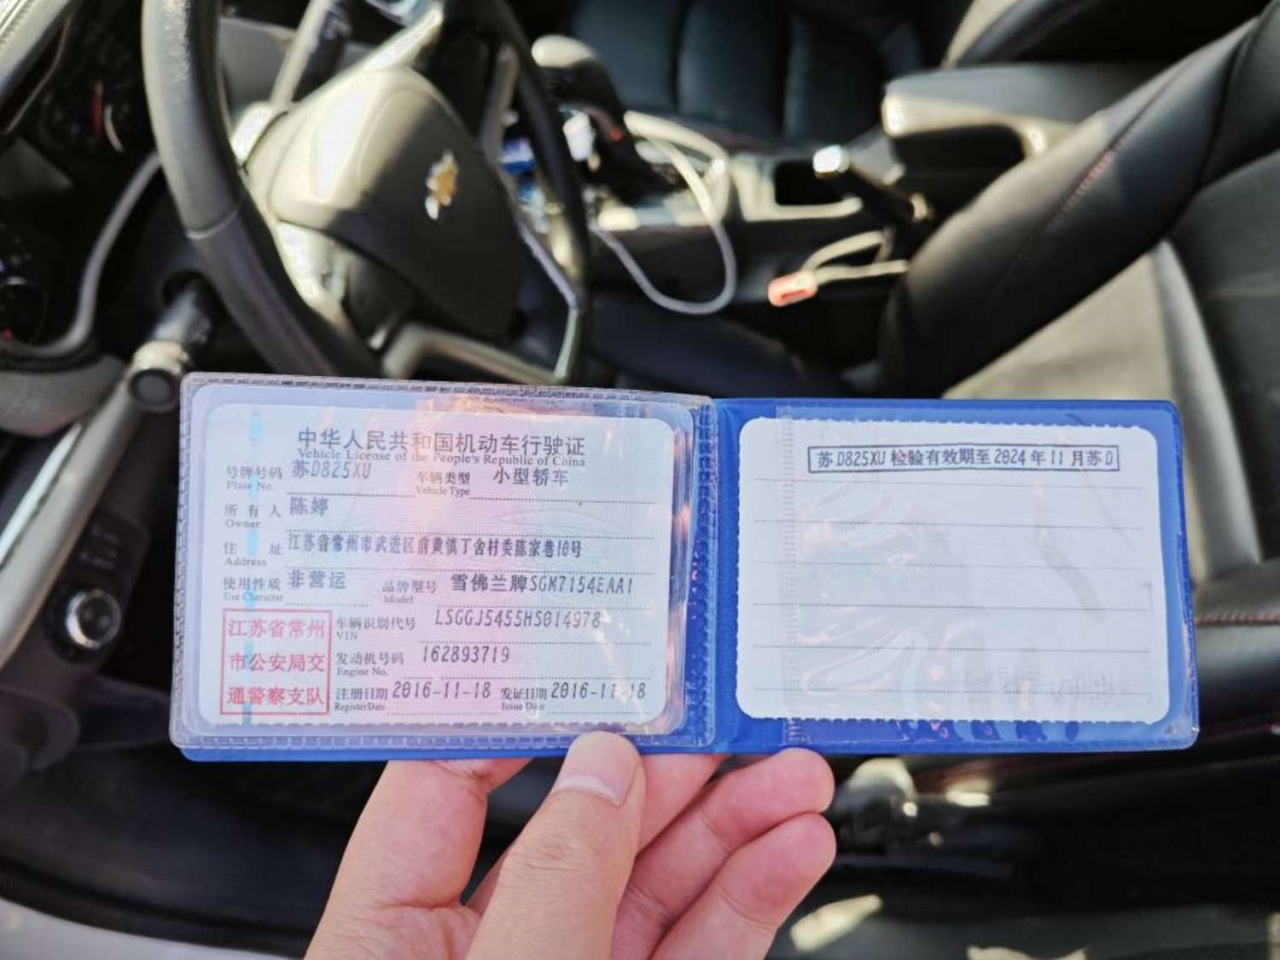 中华人民共和国机动车行驶证
Vehicle License of the People's Republic of China
号牌号码 苏D825XU 车辆类型 小型轿车
Plate No. Vehicle Type
所有人 陈婷
Owner
住址 江苏省常州市武进区前黄镇丁舍村委陈家巷10号
Address
使用性质 非营运 品牌型号 雪佛兰牌SGM7154EAA1
Use Character Model
江苏省常州 车辆识别代号 LSGGJ5455HS014978
VIN
市公安局交 发动机号码 162893719
Engine No.
通警察支队 注册日期 2016-11-18 发证日期 2016-11-18
Register Date Issue Date
苏D825XU 检验有效期至2024年11月苏D